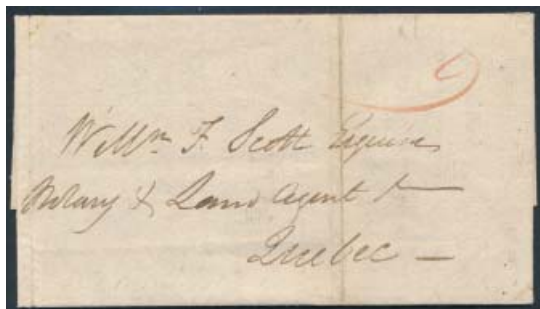 9
Willm F. Scott Esquire
Notary & Land Agent &c
Quebec —